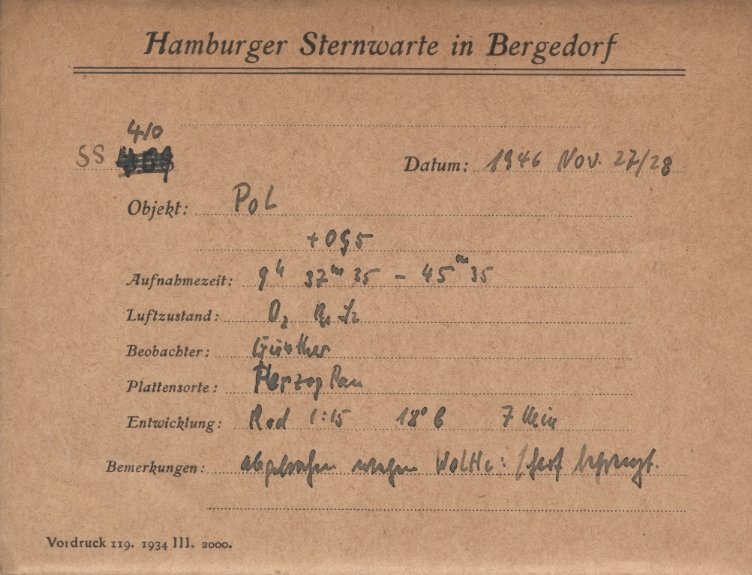 Hamburger Sternwarte in Bergedorf
410
SS
Datum: 1946 Nov. 27/28
Objekt: Pol
+ OG5
Aufnahmezeit: 9h 37m 35 - 45m 35
Luftzustand:
Beobachter: Günther
Plattensorte: Herzog Pan
Entwicklung: Rod 1:15 18° 7 Min
Bemerkungen: abgebrochen wegen Wolke:
Vordruck 119. 1934 III. 2000.